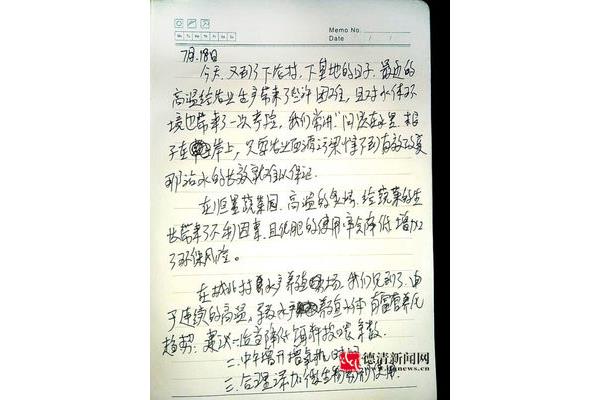 Memo No.
Date / /
Mo Tu We Th Fr Sa Su
7月18日
今天,又到了下农村,下基地的日子.最近的
高温给农业生产带来了些许困难,且对水体环
境也带来了一次考验,我们常讲"问题在水里,根
子在岸上,只要农业面源污染得不到有效改变
那治水的长效就难以保证.
在川恒墨蔬菜园,高温的气场,给蔬菜的生
长带来了不利因素,且化肥的使用率会降低,增加
了环保风险。
在城北村水产养殖场,我们见到了,由
于连续的高温,水产养殖水体有富营养化
趋势,建议一应当降低饵料投喂系数.
二.中午增开增氧机时间
三.合理添加微生物制剂使用.
德清新闻网